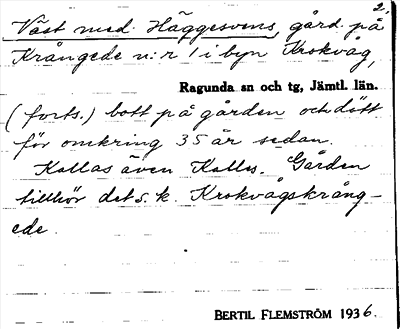 2.
Väst med. Häggesvens, gård på
Krångede n:r 1 i byn Krokvåg,
Ragunda sn och tg, Jämtl. län.
(forts.) bott på gården och dött
för omkring 35 år sedan.
Kallas även Kalles. Gården
tillhör det s. k. Krokvågskrång-
ede.
BERTIL FLEMSTRÖM 1936.